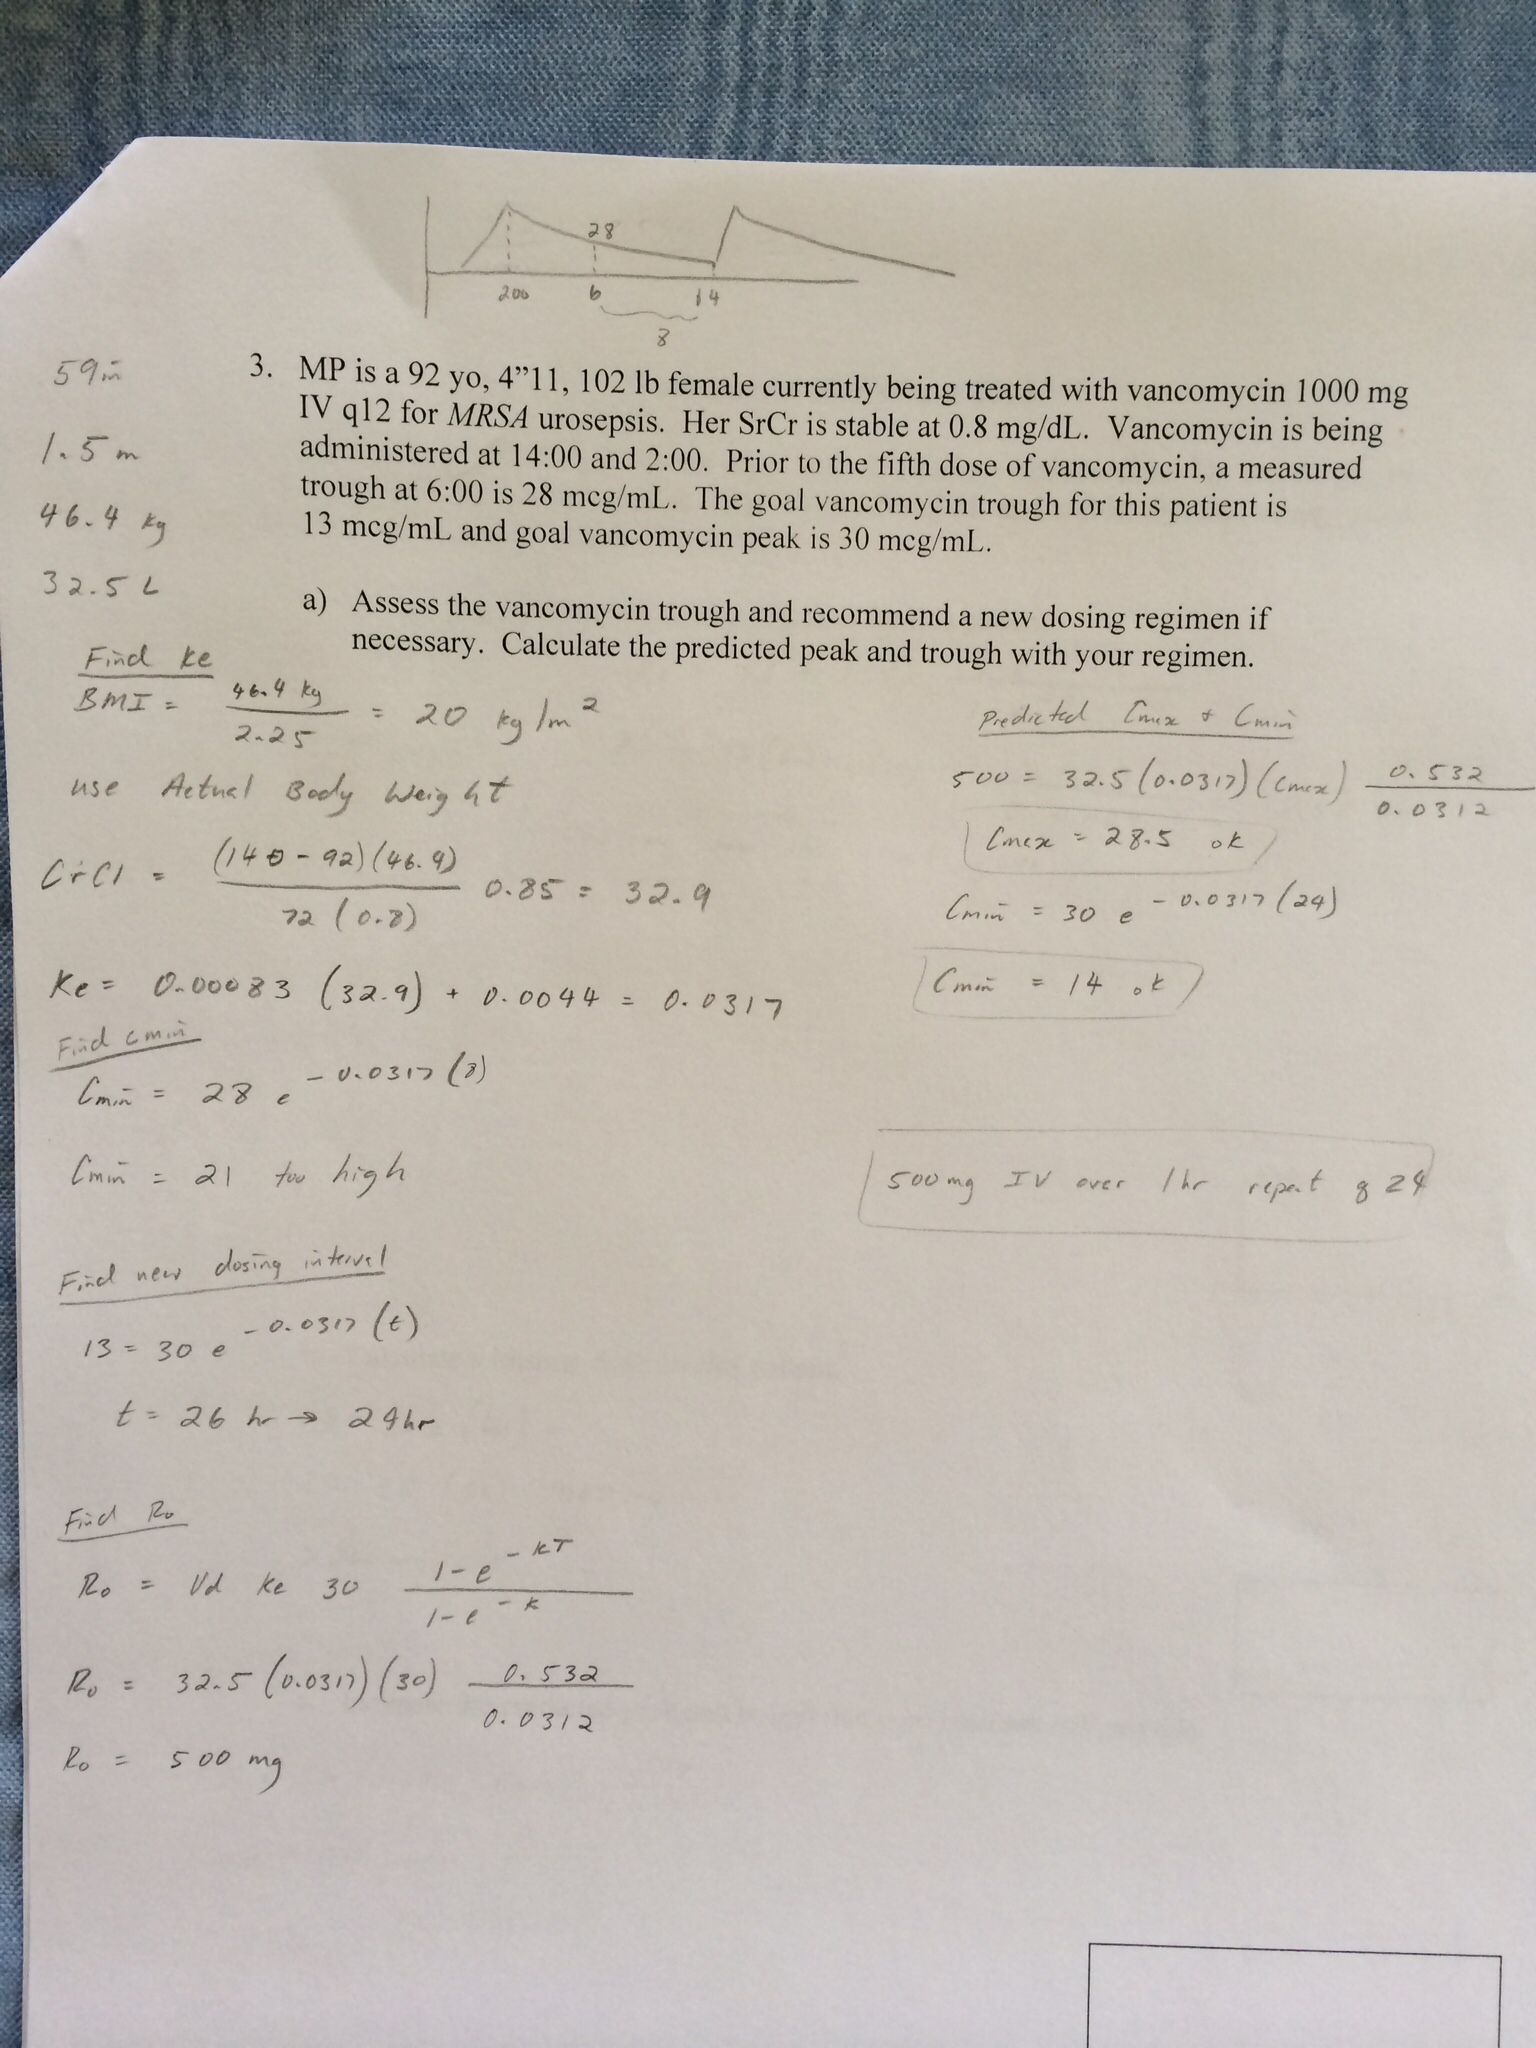 28
200 6 14
8
59in
1.5 m
46.4 kg
32.5 L
3. MP is a 92 yo, 4”11, 102 lb female currently being treated with vancomycin 1000 mg
IV q12 for MRSA urosepsis. Her SrCr is stable at 0.8 mg/dL. Vancomycin is being
administered at 14:00 and 2:00. Prior to the fifth dose of vancomycin, a measured
trough at 6:00 is 28 mcg/mL. The goal vancomycin trough for this patient is
13 mcg/mL and goal vancomycin peak is 30 mcg/mL.
a) Assess the vancomycin trough and recommend a new dosing regimen if
necessary. Calculate the predicted peak and trough with your regimen.
Find Ke
BMI = 46.4 kg / 2.25 = 20 kg/m²
use Actual Body Weight
CrCl = (140-92)(46.4) / 72 (0.8) 0.85 = 32.9
Ke = 0.00083 (32.9) + 0.0044 = 0.0317
Find Cmin
Cmin = 28 e^-0.0317(8)
Cmin = 21 too high
Find new dosing interval
13 = 30 e^-0.0317(t)
t = 26 hr → 24hr
Find Ro
Ro = Vd Ke 30 1-e^-KT / 1-e^-K
Ro = 32.5 (0.0317)(30) 0.532 / 0.0312
Ro = 500 mg
Predicted Cmax + Cmin
500 = 32.5 (0.0317)(Cmax) 0.532 / 0.0312
Cmax = 28.5 ok
Cmin = 30 e^-0.0317(24)
Cmin = 14 ok
500mg IV over 1hr repeat q 24